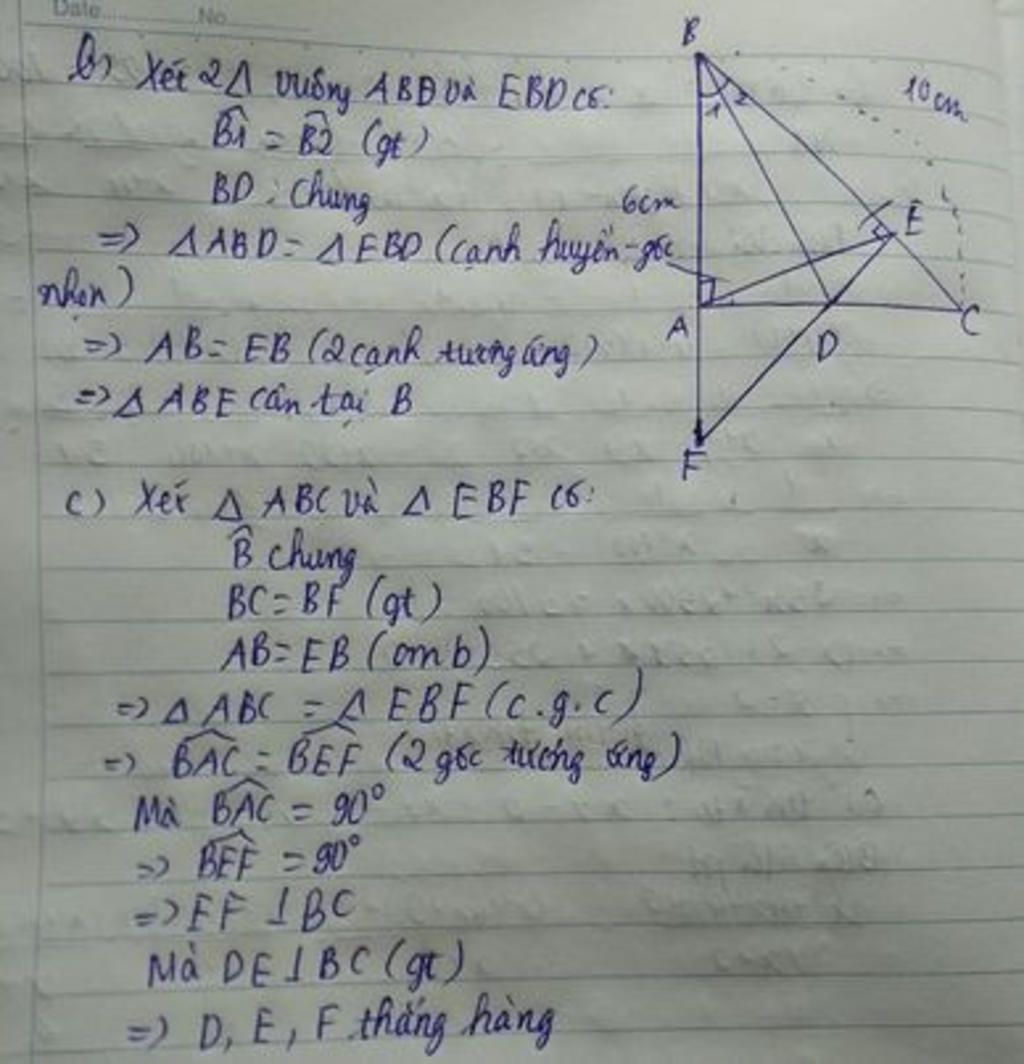 Date....... No
b) Xét 2Δ vuông ABD và EBD có:
B̂1 = B̂2 (gt)
BD : chung
=> Δ ABD = Δ EBD (cạnh huyền - góc
nhọn)
=> AB = EB (2 cạnh tương ứng)
=> Δ ABE cân tại B
c) Xét Δ ABC và Δ EBF có:
B̂ chung
BC = BF (gt)
AB = EB (cm b)
=> Δ ABC = Δ EBF (c.g.c)
=> BAC = BEF (2 góc tương ứng)
Mà BAC = 90°
=> BEF = 90°
=> EF ⊥ BC
Mà DE ⊥ BC (gt)
=> D, E, F thẳng hàng
B
1 2
10 cm
6cm
E
A
D
C
F